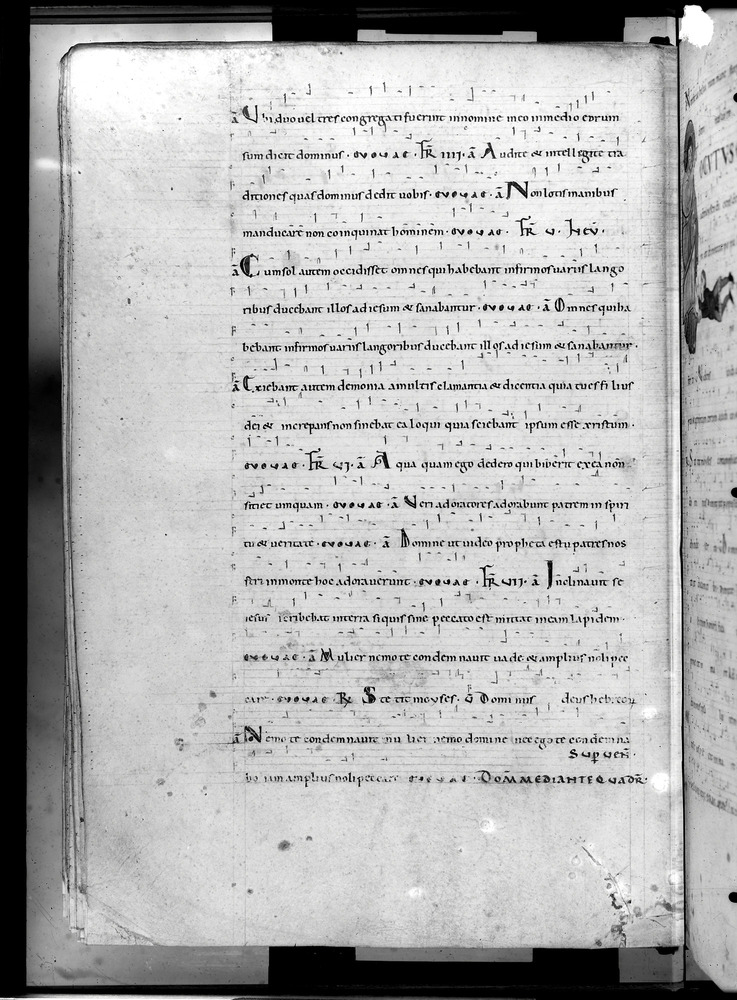 ā Ubi duo uel tres congregati fuerint in nomine meo in medio eorum
sum dicit dominus · euouae · FR̄ IIII · ā Audite & intelligite tra
ditiones quas dominus dedit uobis · euouae · ā Non lotis manibus
manducare non coinquinat hominem · euouae · FR̄ U ·
ā Cum sol autem occidisset omnes qui habebant infirmos uariis lango
ribus ducebant illos ad iesum & sanabantur · euouae · ā Omnes qui ha
bebant infirmos uariis langoribus ducebant illos ad iesum & sanabantur ·
ā Exiebant autem demonia a multis clamantia & dicentia quia tu es filius
dei & increpans non sinebat ea loqui quia sciebant ipsum esse xristum ·
euouae · FR̄ UI · ā Aqua quam ego dedero qui biberit ex ea non
sitiet umquam · euouae · ā Ueri adoratores adorabunt patrem in spiri
tu & ueritate · euouae · ā Domine ut uideo propheta es tu patres nos
tri in monte hoc adorauerunt · euouae · FR̄ UII · ā Inclinauit se
iesus scribebat in terra si quis sine peccato est mittat in eam lapidem ·
euouae · ā Mulier nemo te condemnauit uade & amplius noli pec
care · euouae · R̄ Stetit moyses · Dominus deus hebreorum
ā Nemo te condemnauit mulier nemo domine nec ego te condemna
SUP UEŃ ·
bo iam amplius noli peccare euouae · DOM̄ MEDIANTE QUADR̄ ·